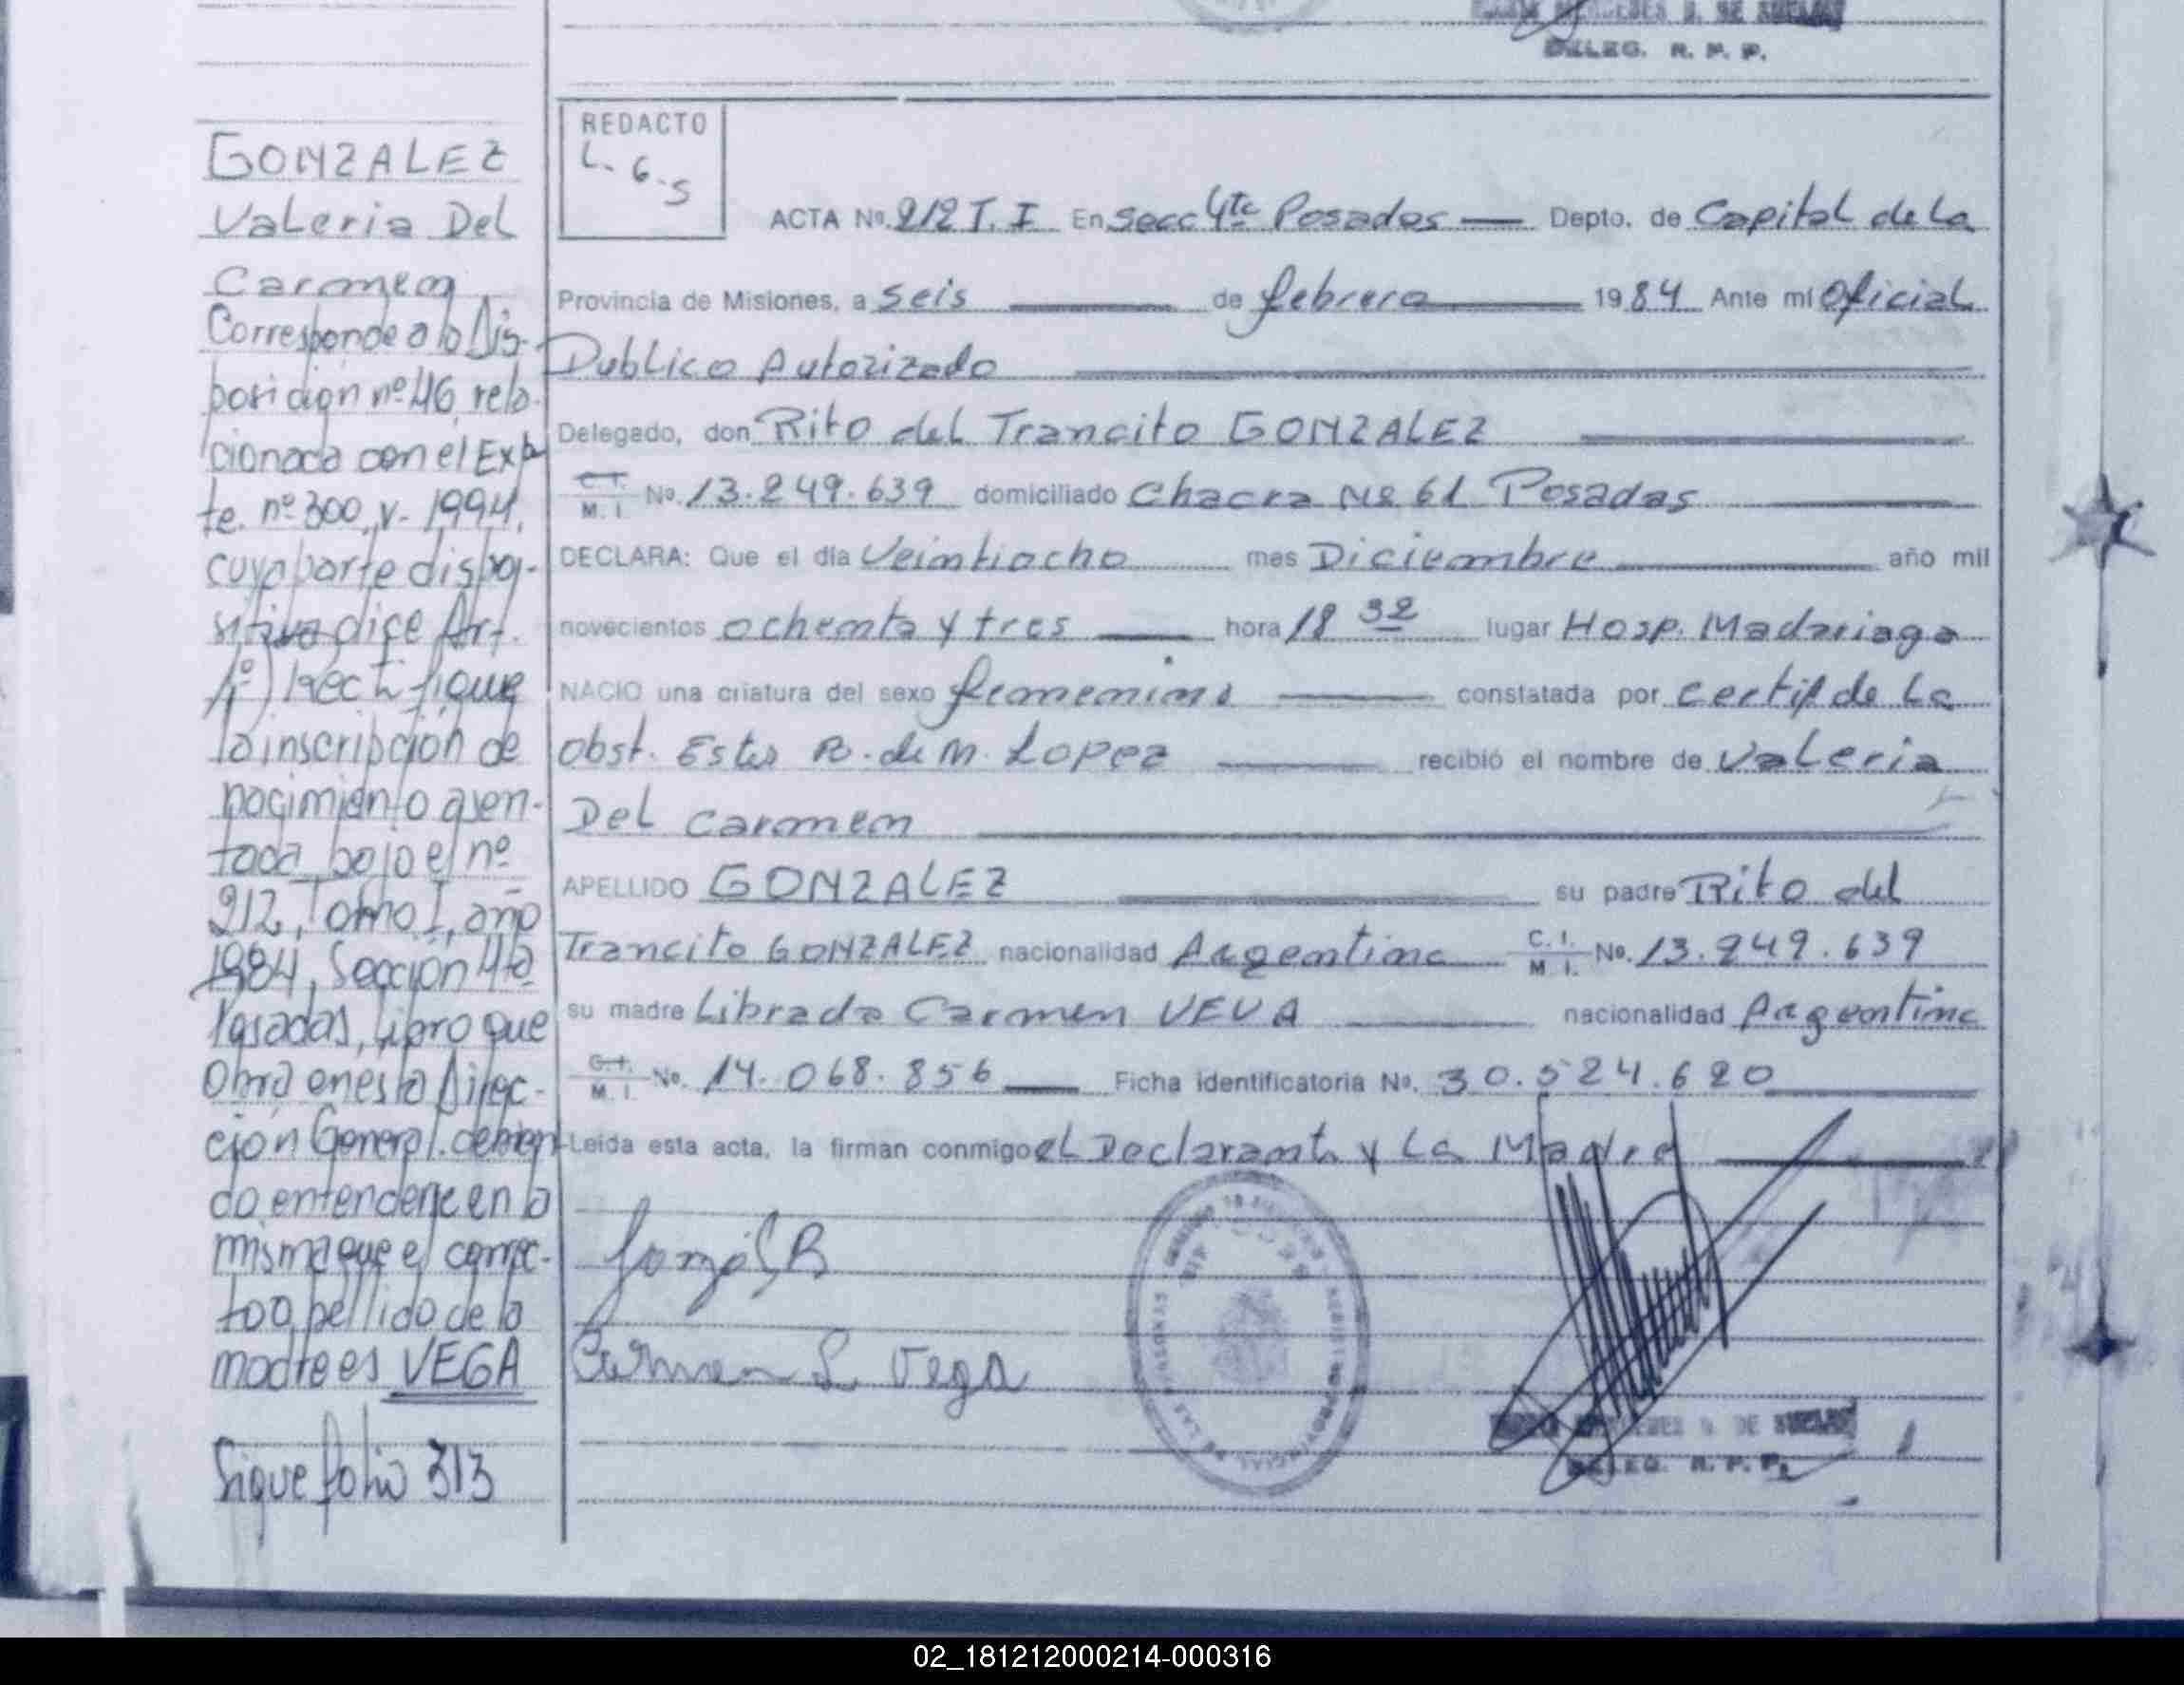 DELEG. R. P. P.
GONZALEZ
Valeria Del
Carmen
Corresponde a la Dis-
posición nº 46 rela-
cionada con el Exp
te. nº 300, V- 1994,
cuya parte dispo-
sitiva dice Art.
1º) Rectifique
la inscripción de
nacimiento asen-
tada bajo el nº
212, Tomo I, año
1984, Sección 4ta
Posadas, libro que
Obra en esta Direc-
ción General. debien
do entenderse en la
misma que el correc-
to apellido de la
madre es VEGA
Sigue folio 313
REDACTO
L. G. S
ACTA No. 212 T. I En Secc 4ta Posadas — Depto. de Capital de La
Provincia de Misiones, a Seis de febrero 1984 Ante mí Oficial
Publico Autorizado
Delegado, don Rito del Trancito GONZALEZ
C. I. M. I. No. 13.249.639 domiciliado Chacra Nº 61 Posadas
DECLARA: Que el día Veintiocho mes Diciembre año mil
novecientos ochenta y tres hora 18 32 lugar Hosp. Madariaga
NACIO una criatura del sexo femenino constatada por certif de La
Obst. Ester R. de M. Lopez recibió el nombre de Valeria
Del Carmen
APELLIDO GONZALEZ su padre Rito del
Trancito GONZALEZ nacionalidad Argentina C. I. M I. No. 13.249.639
su madre Librada Carmen VEUA nacionalidad Argentina
C. I. M. I. No. 14.068.856 Ficha identificatoria No. 30.524.620
Leída esta acta, la firman conmigo el Declarante y La Madre
Carmen L Vega
DELEG. R. P. P.
02_181212000214-000316